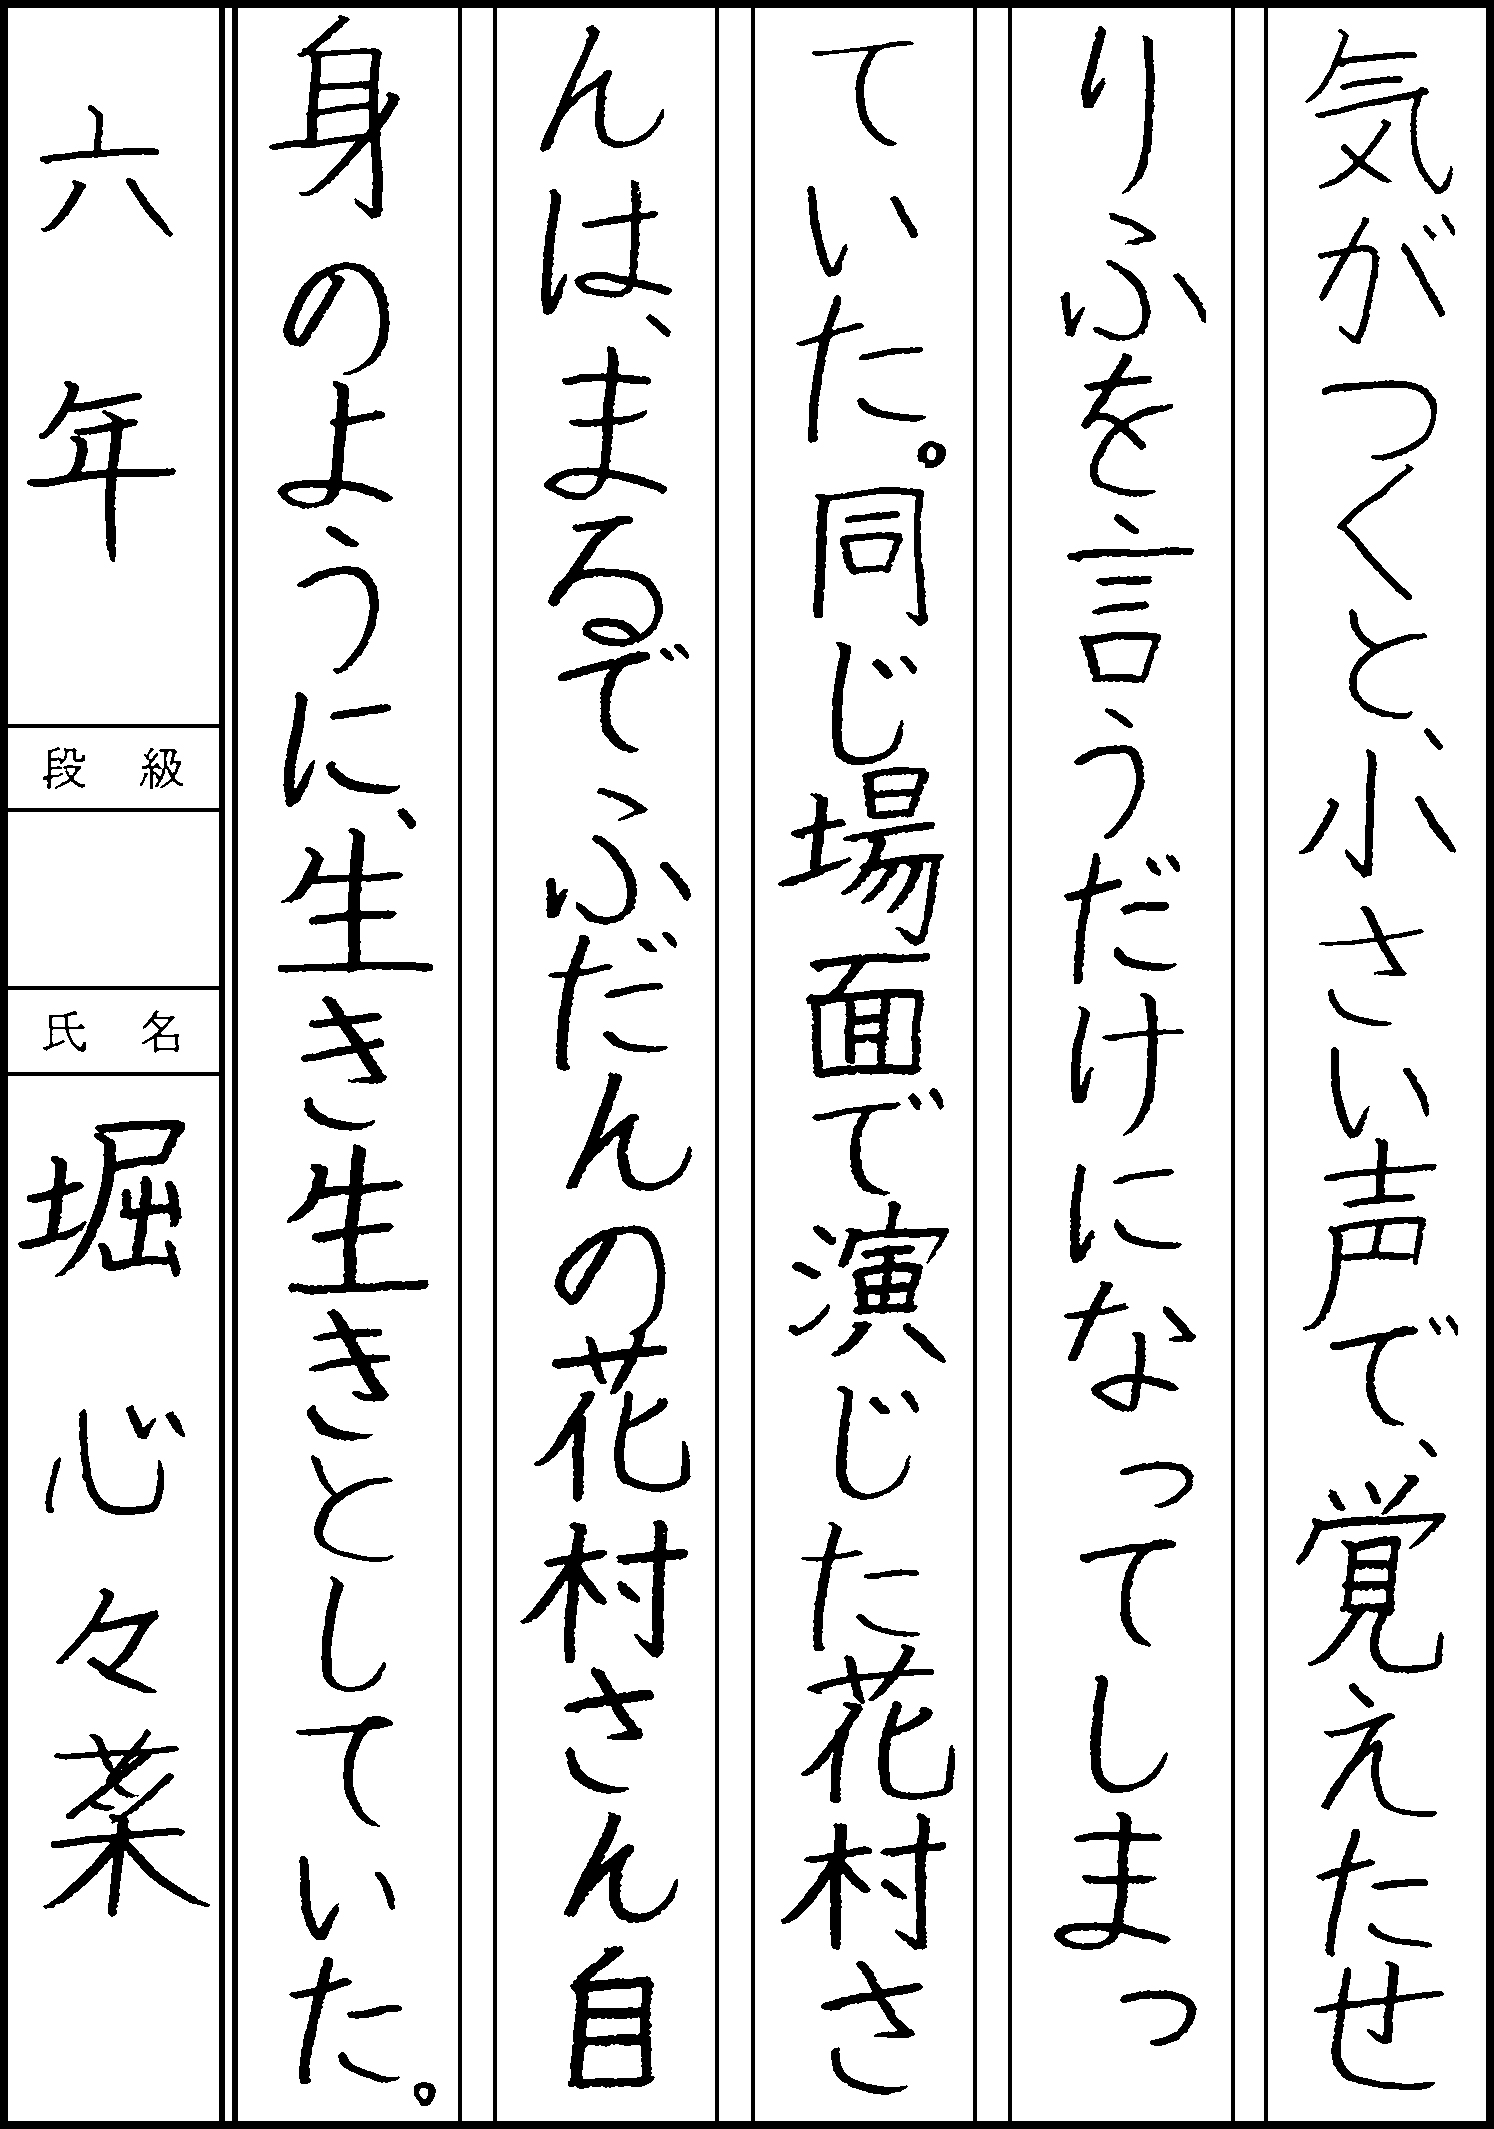 気がつくと、小さい声で、覚えたせ
りふを言うだけになってしまっ
ていた。同じ場面で演じた花村さ
んは、まるでふだんの花村さん自
身のように、生き生きとしていた。
六年
段級
氏名
堀心々菜